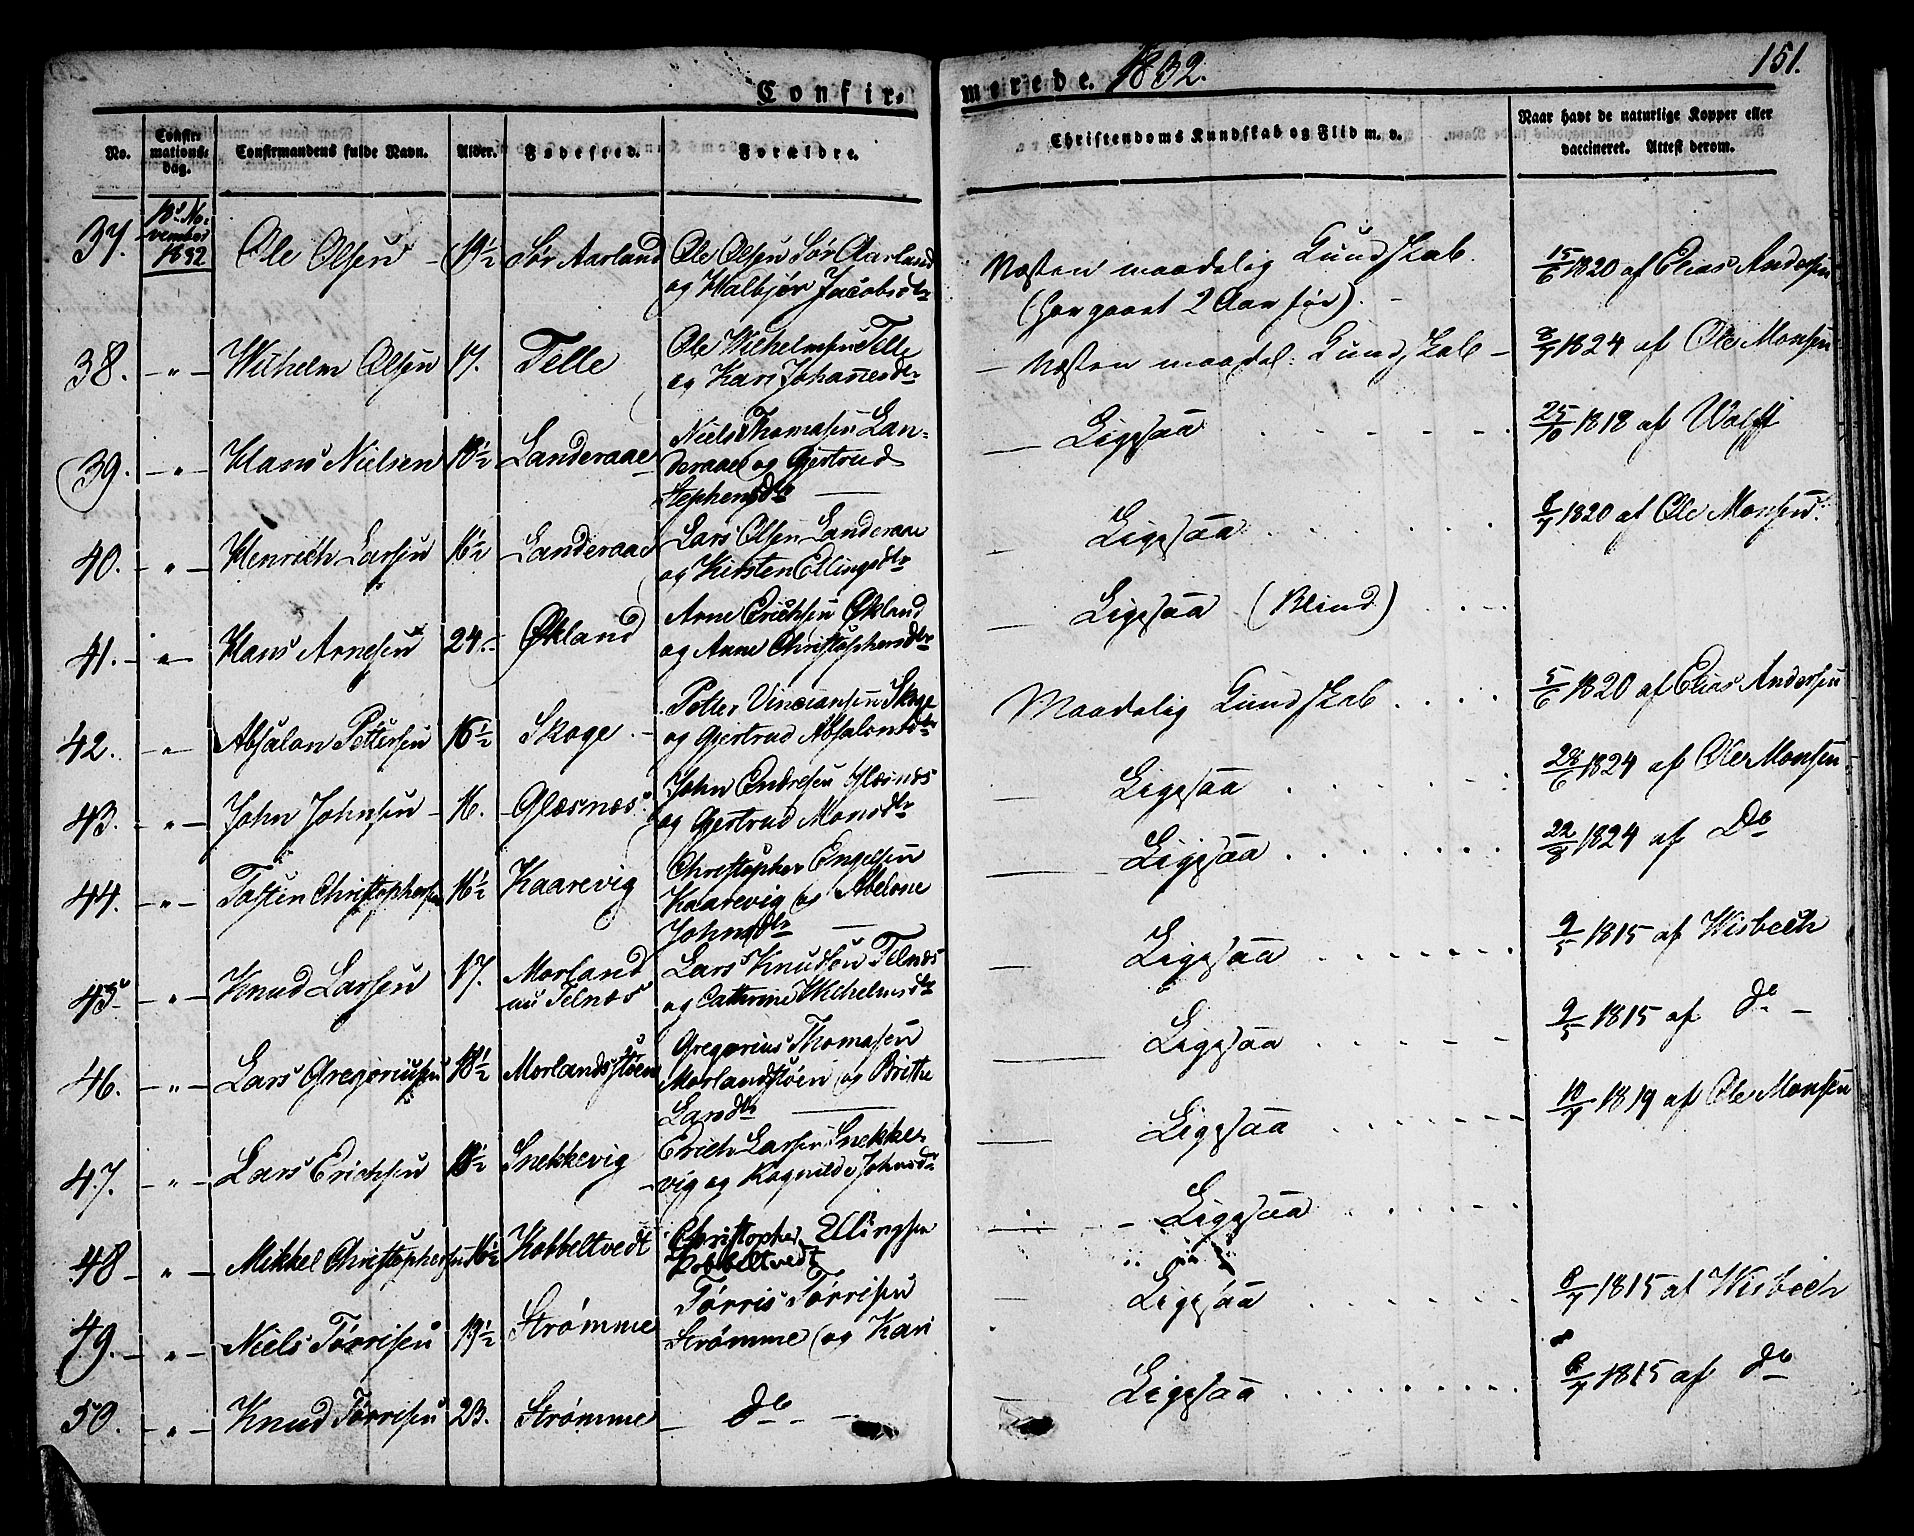 Confir= merede. 1832. 151.
No. Confirmationsdag. Confirmandens fulde Navn. Alder. Fødested. Forældre. Christendoms Kundskab og Flid m. v. Naar havt de naturlige Kopper eller vaccineret. Attest derom.
37. November 1832 Ole Olsen 19½ Sør Aarland Ole Olsen Sør Aarland og Malbjør Jacobsdtr Næsten maadelig Kundskab. 15/6 1820 af Elias Andersen
(har gaaet 2 Aar før).
38. - " - Wilhelm Olsen 17. Telle Ole Wilhelmsen Telle og Kari Johannesdtr Næsten maadel. Kundskab 8/7 1824 af Ole Monsen
39. - " - Hans Nielsen 18½ Landeraae Niels Thomasen Landeraae og Gjertrud Stephensdtr Ligesaa 25/10 1818 af Wolff
40. - " - Henrich Larsen 16½ Landeraae Lars Olsen Landeraae og Kirsten Ellingsdtr Ligesaa 8/7 1820 af Ole Monsen.
41. - " - Hans Arnesen 24. Økland Arne Erichsen Økland og Anne Christophersdtr Ligesaa (Blind)
42. - " - Absalon Pettersen 16½ Skoge Petter Vinciansen Skoge og Gjertrud Absalonsdtr Maadelig Kundskab 5/6 1820 af Elias Andersen
43. - " - John Johnsen 16. Glæsnæs John Endresen Glæsnæs og Gjertrud Monsdtr Ligesaa 28/6 1824 af Ole Monsen
44. - " - Tosten Christophersen 16½ Kaarevig Christopher Engelsen Kaarevig og Abelone Johnsdtr Ligesaa 22/8 1824 af Do
45. - " - Knud Larsen 17. Morland nu Telnæs Lars Knudsen Telnæs og Cathrine Wilhelmsdtr Ligesaa 9/5 1815 af Wisbech
46. - " - Lars Gregoriusen 18½ Morlandsstøen Gregorius Thomasen Morlandstøen og Brithe Larsdtr Ligesaa 9/5 1815 af do
47. - " - Lars Erichsen 18½ Snekkevig Erich Larsen Snekkevig og Ragnilde Johnsdtr Ligesaa 10/7 1819 af Ole Monsen
48 - " - Mikkel Christophersen 16½ Kobbeltvedt Christopher Ellingsen Kobbeltvedt Ligesaa
49. - " - Niels Tørrisen 19½ Strømme Tørris Tørrisen Strømme og Kari Ligesaa 8/7 1815 af Wisbech
50. - " - Knud Tørrisen 23. Strømme do Ligesaa 8/7 1815 af do